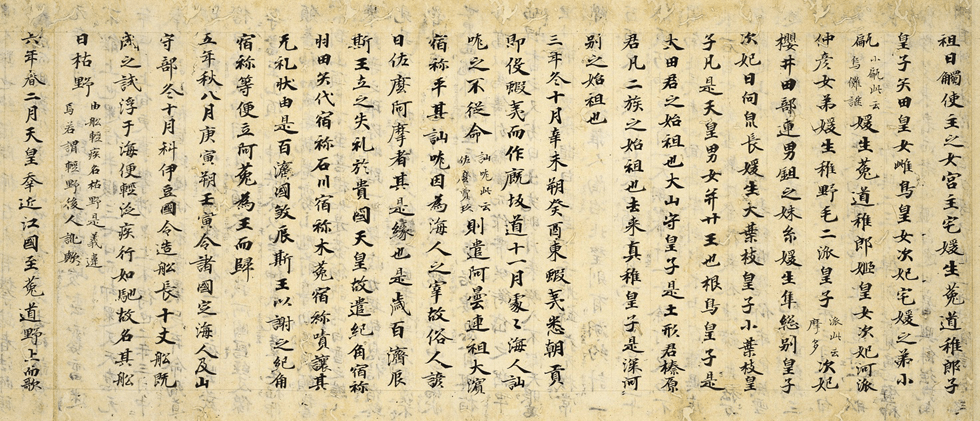 祖日觸使主之女宮主宅媛生菟道稚郎子
皇子矢田皇女雌鳥皇女次妃宅媛之弟小
甂小甂此云烏儺謎媛生菟道稚郎姬皇女次妃河派
仲彥女弟媛生稚野毛二派皇子派此云摩多次妃
櫻井田部連男鉏之妹糸媛生隼総別皇子
次妃日向泉長媛生大葉枝皇子小葉枝皇
子凡是天皇男女并廿王也根鳥皇子是
大田君之始祖也大山守皇子是土形君榛原
君凡二族之始祖也去来真稚皇子是深河
別之始祖也
三年冬十月辛未朔癸酉東蝦夷悉朝貢
即伇蝦夷而作厩坂道十一月處々海人訕
哤之不從命訕哤此云佐麼賣玖則遣阿曇連祖大濱
宿祢平其訕哤因為海人之宰故俗人諺
曰佐麼阿摩者其是緣也是歲百濟辰
斯王立之失礼於貴國天皇故遣紀角宿祢
羽田矢代宿祢石川宿祢木菟宿祢嘖讓其
无礼狀由是百濟國煞辰斯王以謝之紀角
宿祢等便立阿菟為王而歸
五年秋八月庚寅朔壬寅令諸國定海人及山
守部冬十月科伊豆國令造舩長十丈舩既
成之試浮于海便輕泛疾行如馳故名其舩
曰枯野由舩輕疾名枯野是義違焉若謂輕野後人訛歟
六年春二月天皇幸近江國至菟道野上而歌